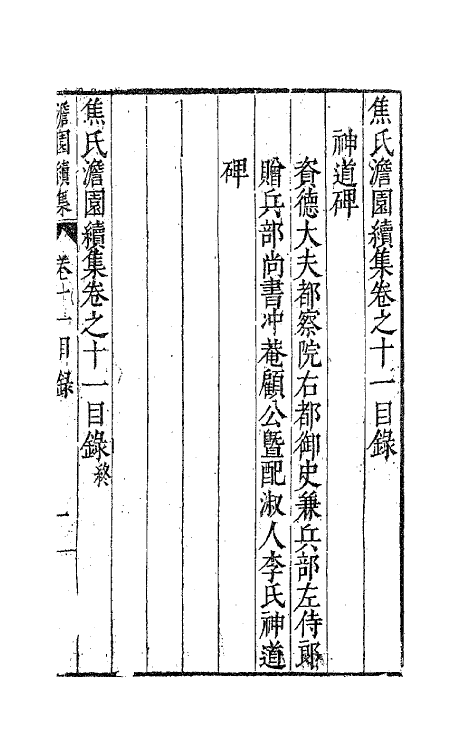 焦氏澹園續集卷之十一目錄
神道碑
資德大夫都察院右都御史兼兵部左侍郎
贈兵部尚書冲菴顧公曁配淑人李氏神道
碑
焦氏澹園續集卷之十一目錄終
澹園續集 卷十一目錄 一